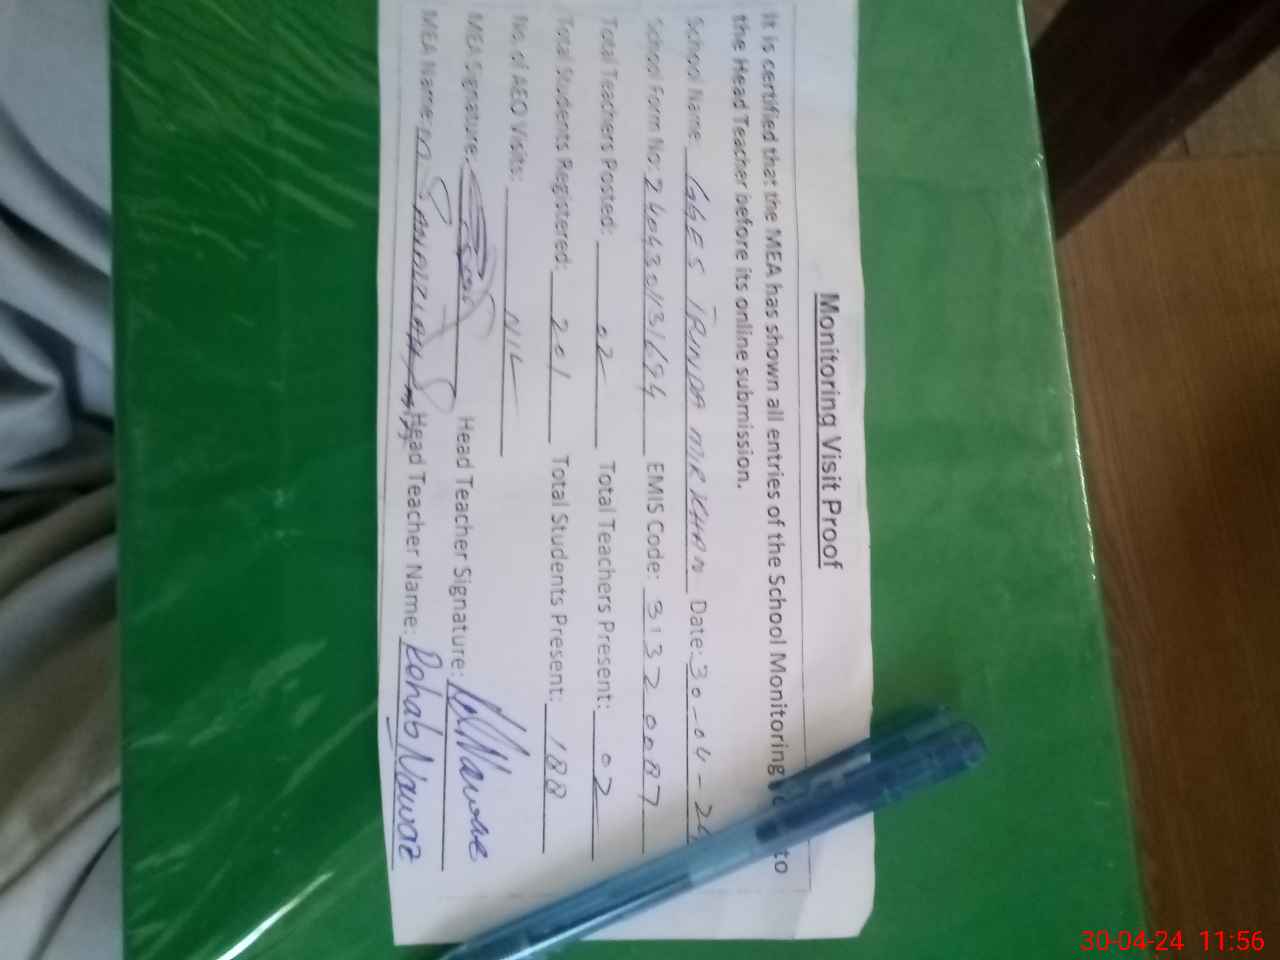 Monitoring Visit Proof
It is certified that the MEA has shown all entries of the School Monitoring to
the Head Teacher before its online submission.
School Name GGES TRINDA MIR KHAN Date: 30-04-24
School Form No: 240430131694 EMIS Code: 31320087
Total Teachers Posted: 02 Total Teachers Present: 02
Total Students Registered: 201 Total Students Present: 188
No. of AEO Visits: NIL
MEA Signature: Head Teacher Signature: Nawaz
MEA Name: Head Teacher Name: Rohab Nawaz
30-04-24 11:56